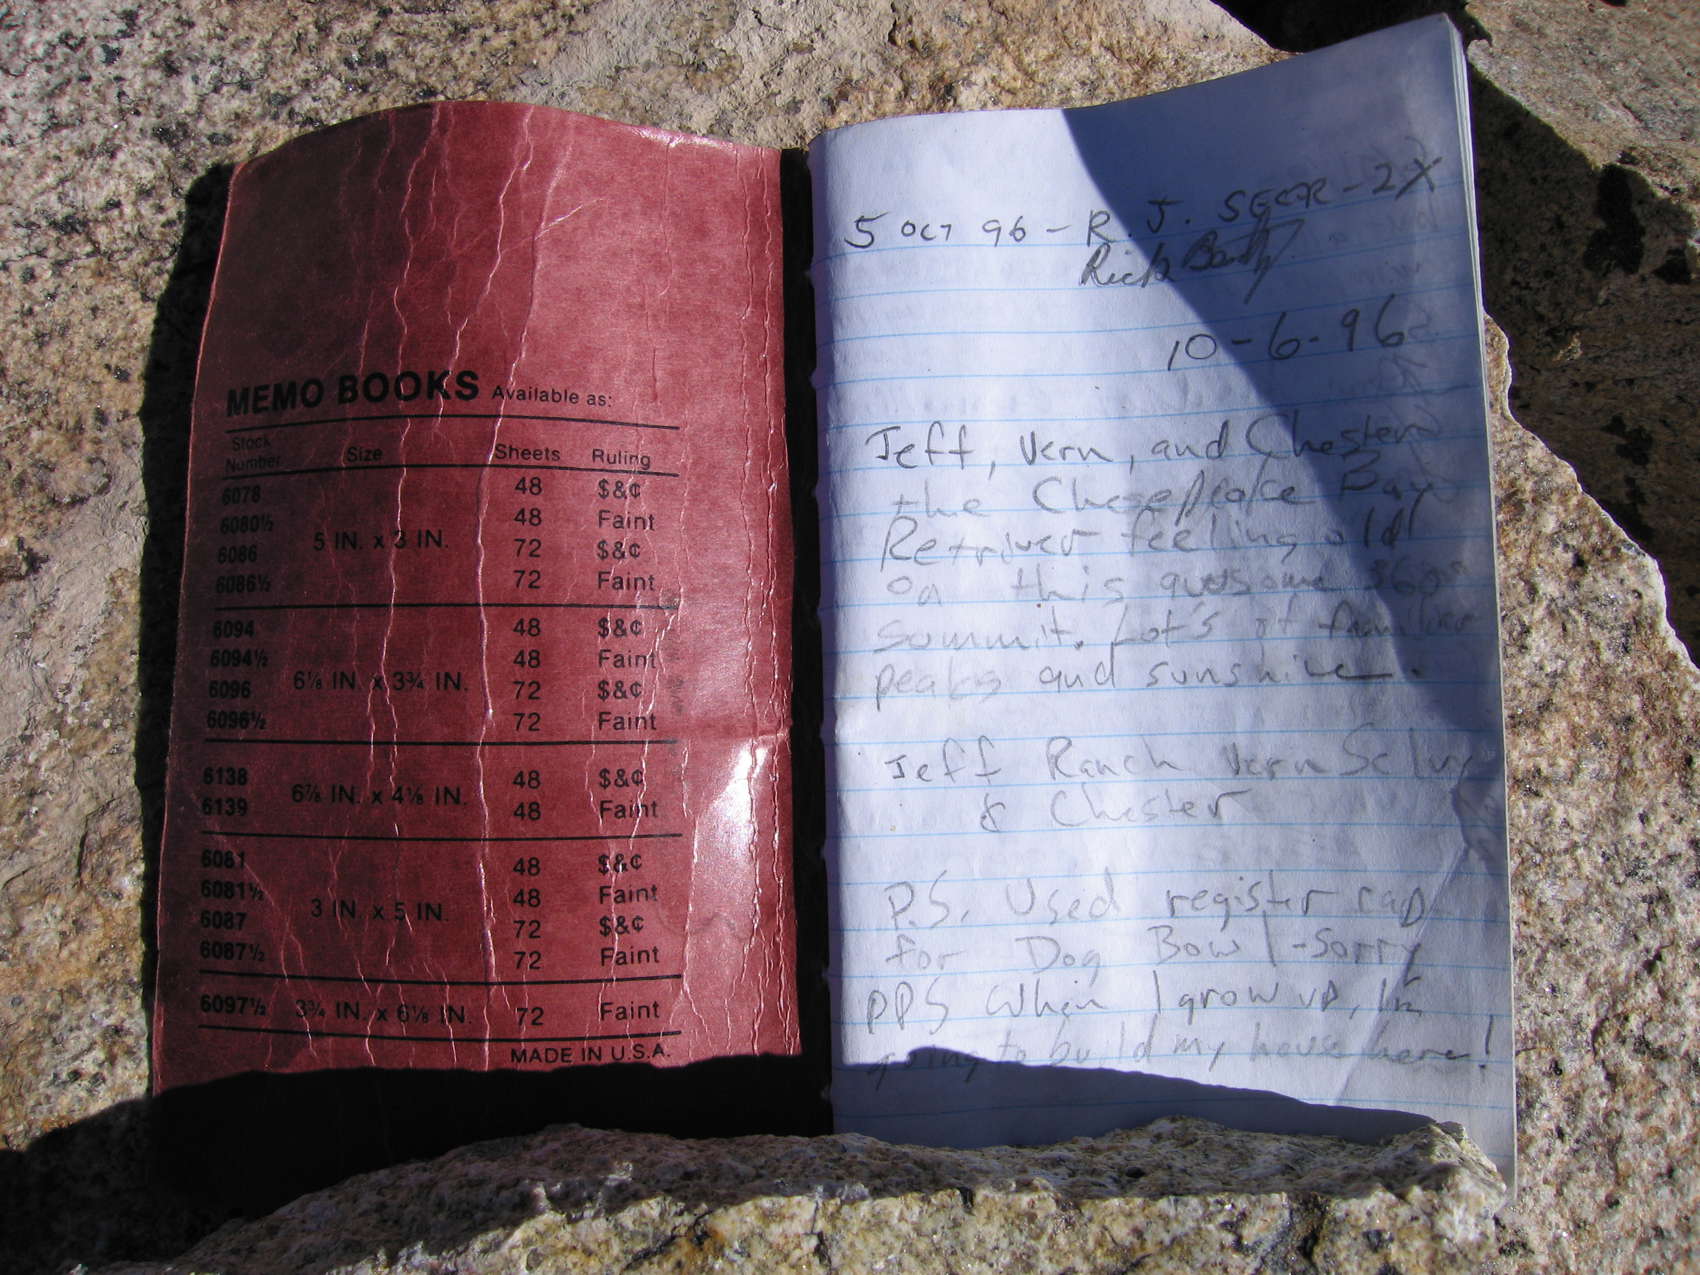 MEMO BOOKS Available as:
Stock Number Size Sheets Ruling
6078 48 $&¢
6080½ 48 Faint
5 IN. x 3 IN.
6086 72 $&¢
6086½ 72 Faint
6094 48 $&¢
6094½ 48 Faint
6⅛ IN. x 3¾ IN.
6096 72 $&¢
6096½ 72 Faint
6138 48 $&¢
6⅞ IN. x 4⅛ IN.
6139 48 Faint
6081 48 $&¢
6081½ 48 Faint
3 IN. x 5 IN.
6087 72 $&¢
6087½ 72 Faint
6097½ 3¾ IN. x 6⅛ IN. 72 Faint
MADE IN U.S.A.
5 OCT 96 - R. J. SECOR - 2X
Rick
10-6-96
Jeff, Vern, and Chester
the Chesepeake Bay
Retriver feeling old
on this awesome
summit. Lot's of familiar
peaks and sunshine.
Jeff Ranch Vern
& Chester
P.S. Used register cap
for Dog Bowl - Sorry
PPS When I grow up, I'm
going to build my house here!